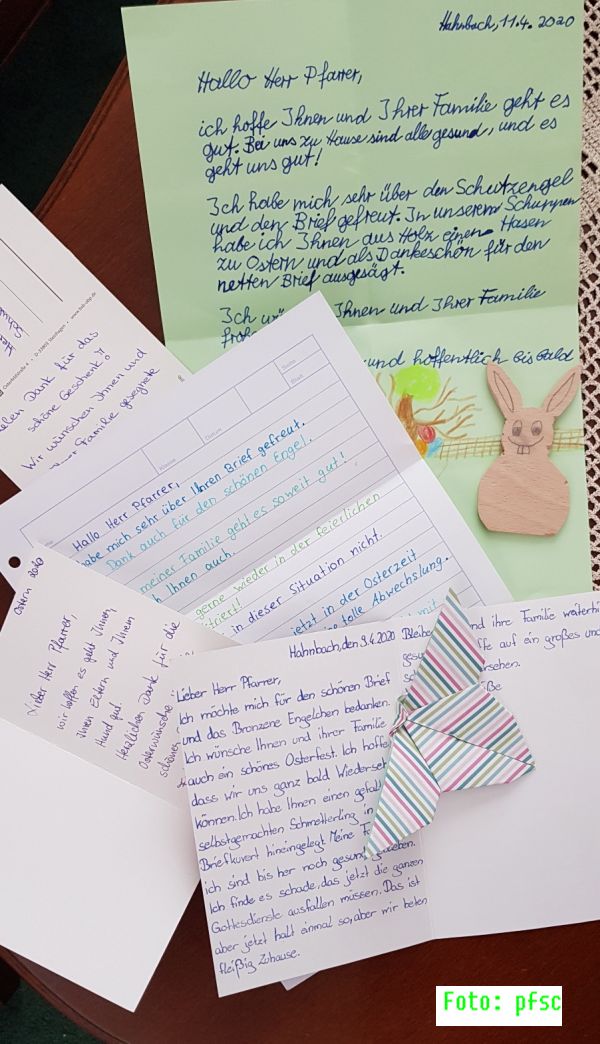 Hahnbach, 11.4. 2020
Hallo Herr Pfarrer,
ich hoffe Ihnen und Ihrer Familie geht es
gut. Bei uns zu Hause sind alle gesund, und es
geht uns gut!
Ich habe mich sehr über den Schutzengel
und den Brief gefreut. In unserem Schuppen
habe ich Ihnen aus Holz einen Hasen
zu Ostern und als Dankeschön für den
netten Brief ausgesägt.
Ich Ihnen und Ihrer Familie
und hoffentlich bis bald
Dank für das
schöne Geschenk!
Wir wünschen Ihnen und
Familie gesegnete
Name
Blatt
Klasse
Datum
Hallo Herr Pfarrer,
habe mich sehr über Ihren Brief gefreut.
Dank auch für den schönen Engel.
meiner Familie geht es soweit gut!
Ihnen auch.
gerne wieder in der feierlichen
in dieser Situation nicht.
jetzt in der Osterzeit
tolle Abwechslung.
mit
Ostern 2020
Lieber Herr Pfarrer,
wir hoffen es geht Ihnen,
Ihren Eltern und Ihrem
Hund gut.
Herzlichen Dank für die
Osterwünsche
schönen
Hahnbach, den 9.4.2020
Lieber Herr Pfarrer,
Ich möchte mich für den schönen Brief
und das Bronzene Engelchen bedanken.
Ich wünsche Ihnen und ihrer Familie
auch ein schönes Osterfest. Ich hoffe
dass wir uns ganz bald Wiedersehen
können. Ich habe Ihnen einen
selbstgemachten Schmetterling in
Briefkuvert hineingelegt. Meine
ich sind bis her noch gesund
Ich finde es schade, das jetzt die ganzen
Gottesdienste ausfallen müssen. Das ist
aber jetzt halt einmal so, aber mir beten
fleißig Zuhause.
und ihre Familie weiterhin
auf ein großes und
Foto: pfsc